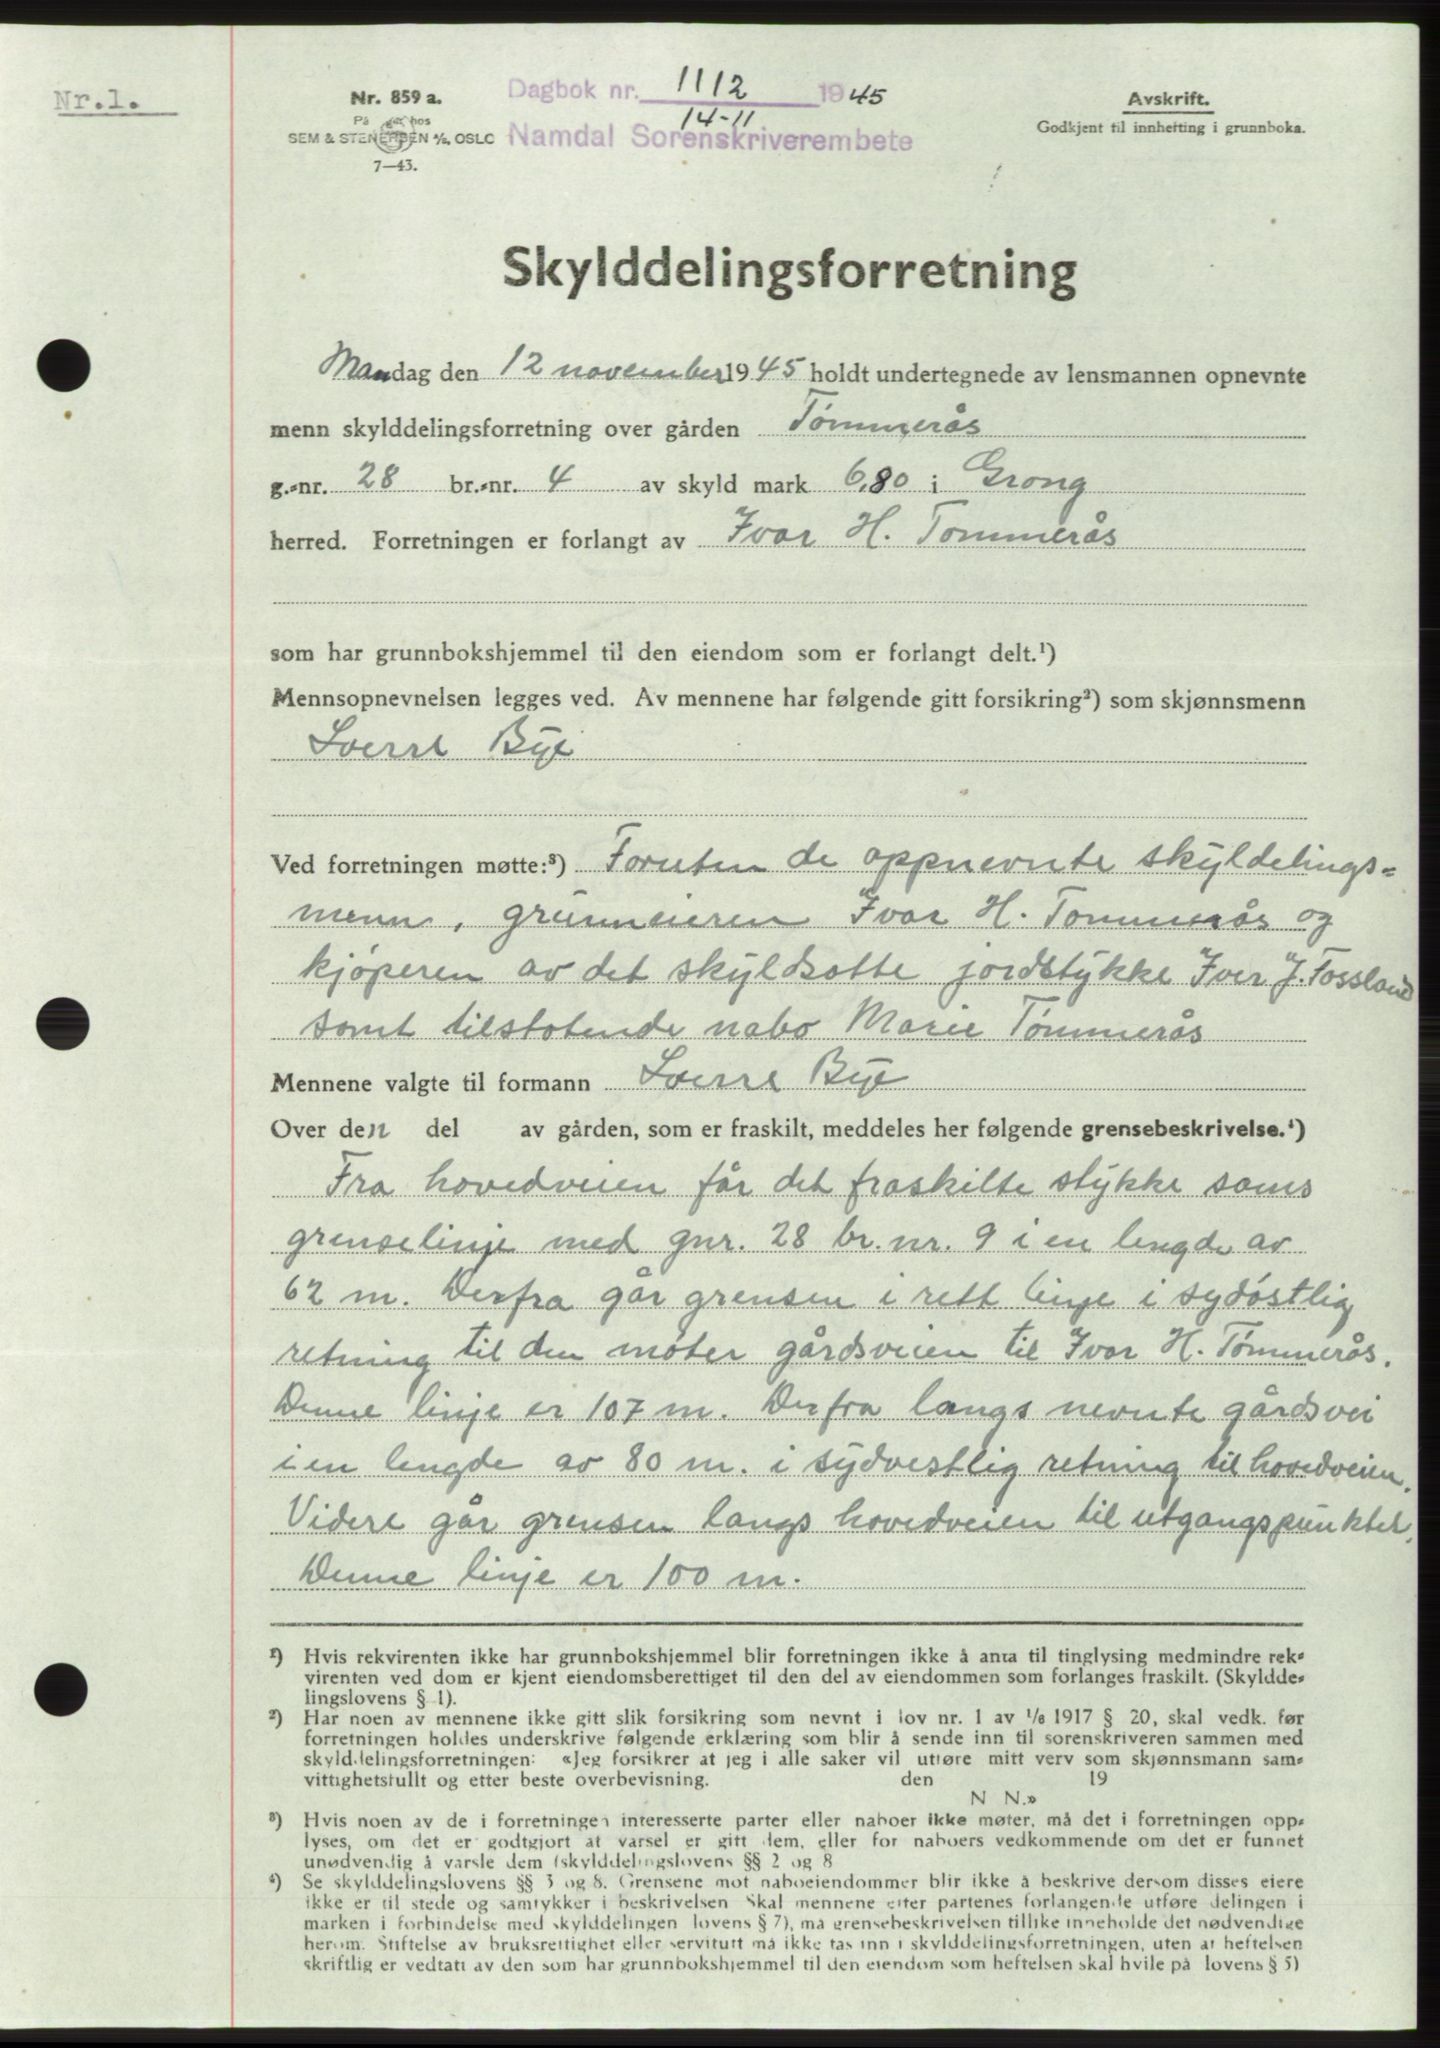 Nr.1.
Nr. 859 a.
På
hos
SEM & STENERSEN A/S, OSLO
7—43.
Dagbok nr. 1112 1945
14-11
Namdal Sorenskriverembete
Avskrift.
Godkjent til innhefting i grunnboka.
Skylddelingsforretning
Mandag den 12 november 1945 holdt undertegnede av lensmannen opnevnte
menn skylddelingsforretning over gården Tømmerås
g.-nr. 28 br.-nr. 4 av skyld mark 6,80 i Grong
herred. Forretningen er forlangt av Ivar H. Tømmerås
som har grunnbokshjemmel til den eiendom som er forlangt delt.¹)
Mennsopnevnelsen legges ved. Av mennene har følgende gitt forsikring²) som skjønnsmenn
Sverre Bye
Ved forretningen møtte:³) Foruten de oppnevnte skyldelings-
menn, grunneieren Ivar H. Tømmerås og
kjøperen av det skyldsatte jordstykke Iver J. Fossland
samt tilstøtende nabo Marie Tømmerås
Mennene valgte til formann Sverre Bye
Over den del av gården, som er fraskilt, meddeles her følgende grensebeskrivelse.⁴)
Fra hovedveien får det fraskilte stykke sams
grenselinje med gnr. 28 br. nr. 9 i en lengde av
62 m. Derfra går grensen i rett linje i sydøstlig
retning til den møter gårdsveien til Ivar H. Tømmerås.
Denne linje er 107 m. Derfra langs nevnte gårdsvei
i en lengde av 80 m. i sydvestlig retning til hovedveien.
Videre går grensen langs hovedveien til utgangspunktet.
Denne linje er 100 m.
¹) Hvis rekvirenten ikke har grunnbokshjemmel blir forretningen ikke å anta til tinglysing medmindre rek-
virenten ved dom er kjent eiendomsberettiget til den del av eiendommen som forlanges fraskilt. (Skyldde-
lingslovens § 1).
²) Har noen av mennene ikke gitt slik forsikring som nevnt i lov nr. 1 av 1/8 1917 § 20, skal vedk. før
forretningen holdes underskrive følgende erklæring som blir å sende inn til sorenskriveren sammen med
skylddelingsforretningen: «Jeg forsikrer at jeg i alle saker vil utføre mitt verv som skjønnsmann sam-
vittighetsfullt og etter beste overbevisning. den 19
N N.»
³) Hvis noen av de i forretningen interesserte parter eller naboer ikke møter, må det i forretningen opp-
lyses, om det er godtgjort at varsel er gitt dem, eller for naboers vedkommende om det er funnet
unødvendig å varsle dem (skylddelingslovens §§ 2 og 8
⁴) Se skylddelingslovens §§ 3 og 8. Grensene mot naboeiendommer blir ikke å beskrive dersom disses eiere
ikke er til stede og samtykker i beskrivelsen Skal mennene etter partenes forlangende utføre delingen i
marken i forbindelse med skylddelingen lovens § 7), må grensebeskrivelsen tillike inneholde det nødvendige
herom. Stiftelse av bruksrettighet eller servitutt må ikke tas inn i skylddelingsforretningen, uten at heftelsen
skriftlig er vedtatt av den som har grunnbokshjemmel til den eiendom som heftelsen skal hvile på lovens § 5)